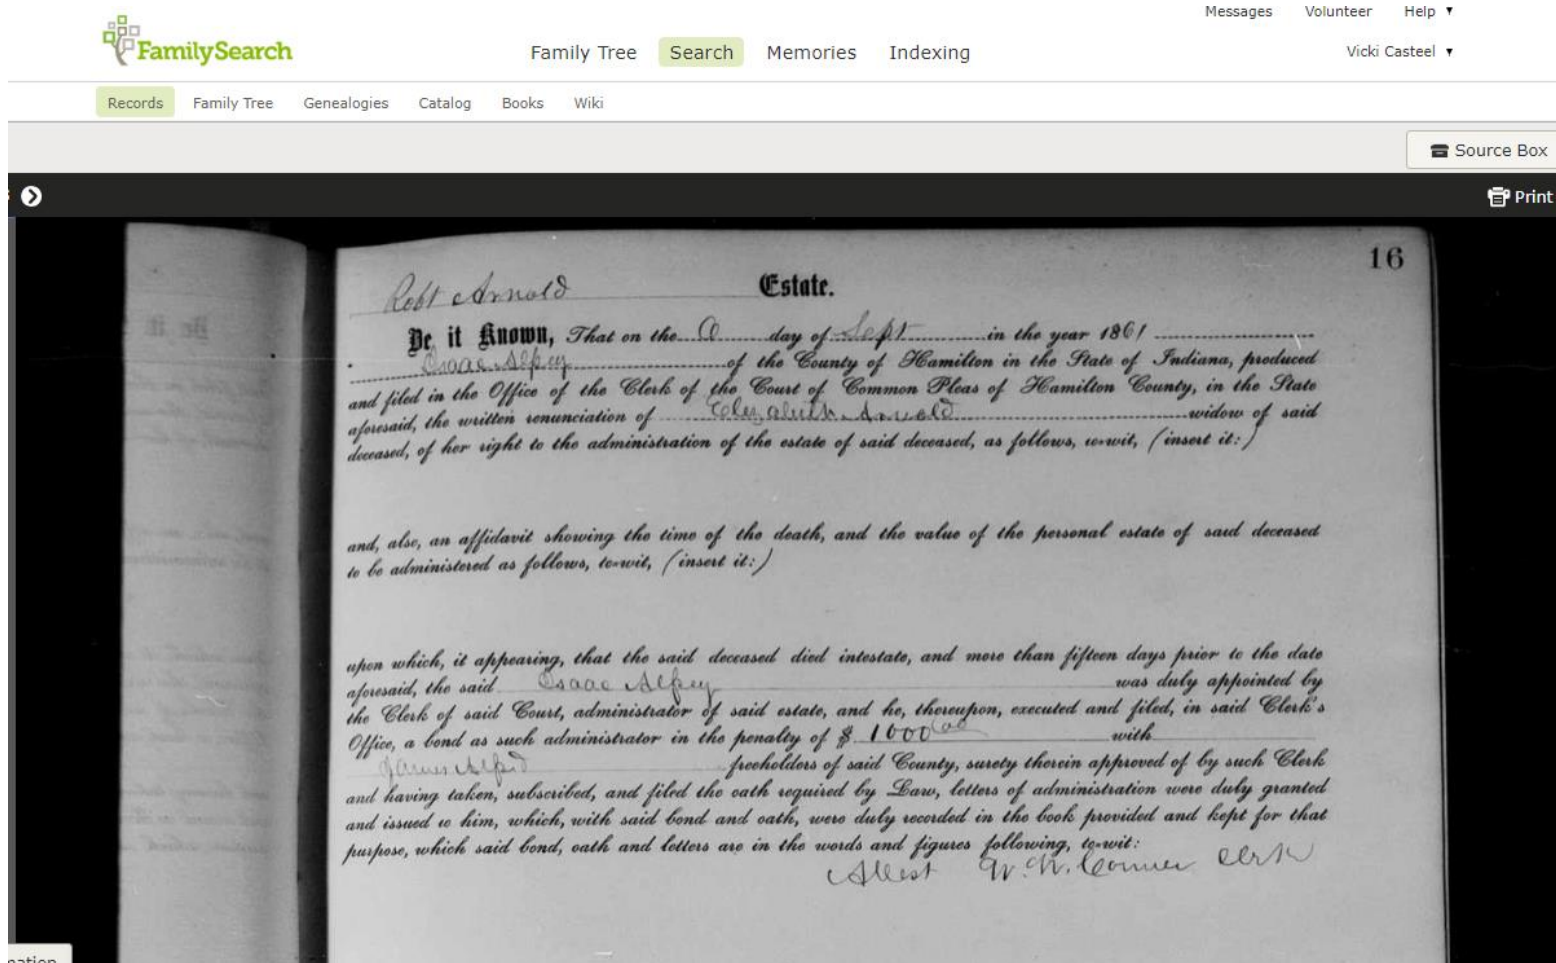 Messages Volunteer Help ▼
FamilySearch
Family Tree Search Memories Indexing
Vicki Casteel ▼
Records Family Tree Genealogies Catalog Books Wiki
Source Box
Print
16
Robt Arnold Estate.
Be it Known, That on the day of Sept in the year 1861
Isaac of the County of Hamilton in the State of Indiana, produced
and filed in the Office of the Clerk of the Court of Common Pleas of Hamilton County, in the State
aforesaid, the written renunciation of Elizabeth Arnold widow of said
deceased, of her right to the administration of the estate of said deceased, as follows, to-wit, (insert it:)
and, also, an affidavit showing the time of the death, and the value of the personal estate of said deceased
to be administered as follows, to-wit, (insert it:)
upon which, it appearing, that the said deceased died intestate, and more than fifteen days prior to the date
aforesaid, the said Isaac was duly appointed by
the Clerk of said Court, administrator of said estate, and he, thereupon, executed and filed, in said Clerk's
Office, a bond as such administrator in the penalty of $ 1000 00 with
James freeholders of said County, surety therein approved of by such Clerk
and having taken, subscribed, and filed the oath required by Law, letters of administration were duly granted
and issued to him, which, with said bond and oath, were duly recorded in the book provided and kept for that
purpose, which said bond, oath and letters are in the words and figures following, to-wit:
Attest W. W. Conner Clerk